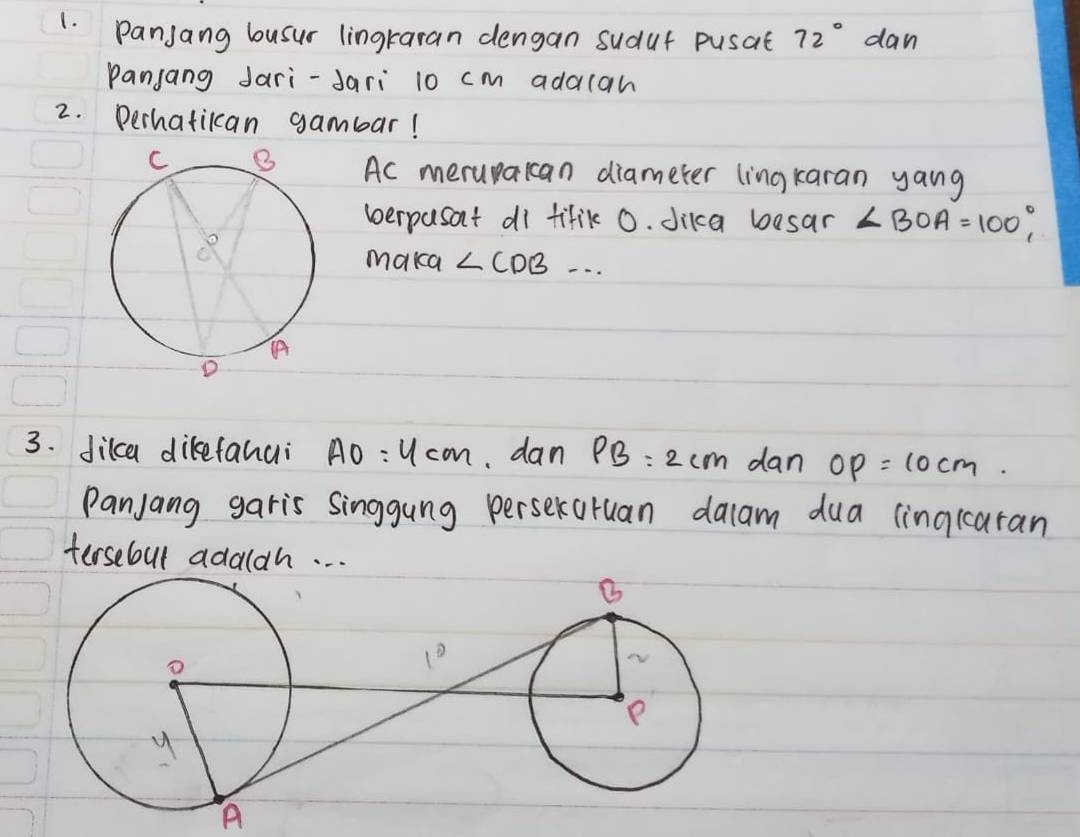 1. Panjang busur lingkaran dengan sudut pusat 72° dan
panjang Jari-Jari 10 cm adalah
2. Perhatikan gambar!
C B
AC merupakan diameter lingkaran yang
berpusat di titik O. Jika besar ∠BOA = 100°,
O
maka ∠CDB ...
A
D
3. Jika diketahui AO = 4 cm, dan PB = 2 cm dan OP = 10 cm.
Panjang garis Singgung persekutuan dalam dua lingkaran
tersebut adalah ...
B
O 10 2
P
4
A